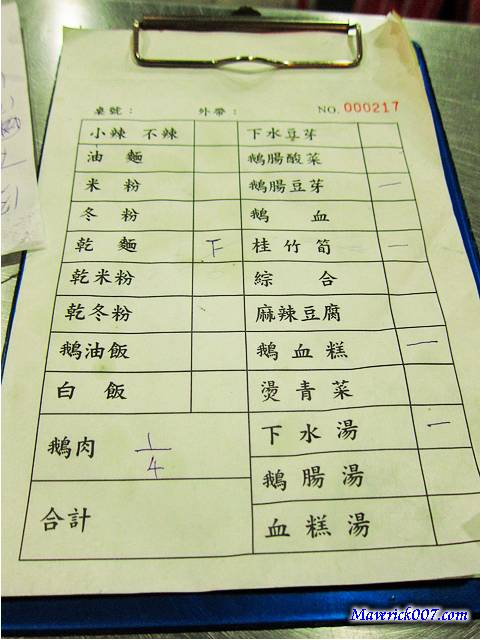 桌號： 外帶： NO. 000217
小辣 不辣 下水豆芽
油麵 鵝腸酸菜
米粉 鵝腸豆芽 一
冬粉 鵝血
乾麵 下 桂竹筍 一
乾米粉 綜合
乾冬粉 麻辣豆腐
鵝油飯 鵝血糕 一
白飯 燙青菜
鵝肉 1/4 下水湯 一
鵝腸湯
合計 血糕湯
Maverick007.com